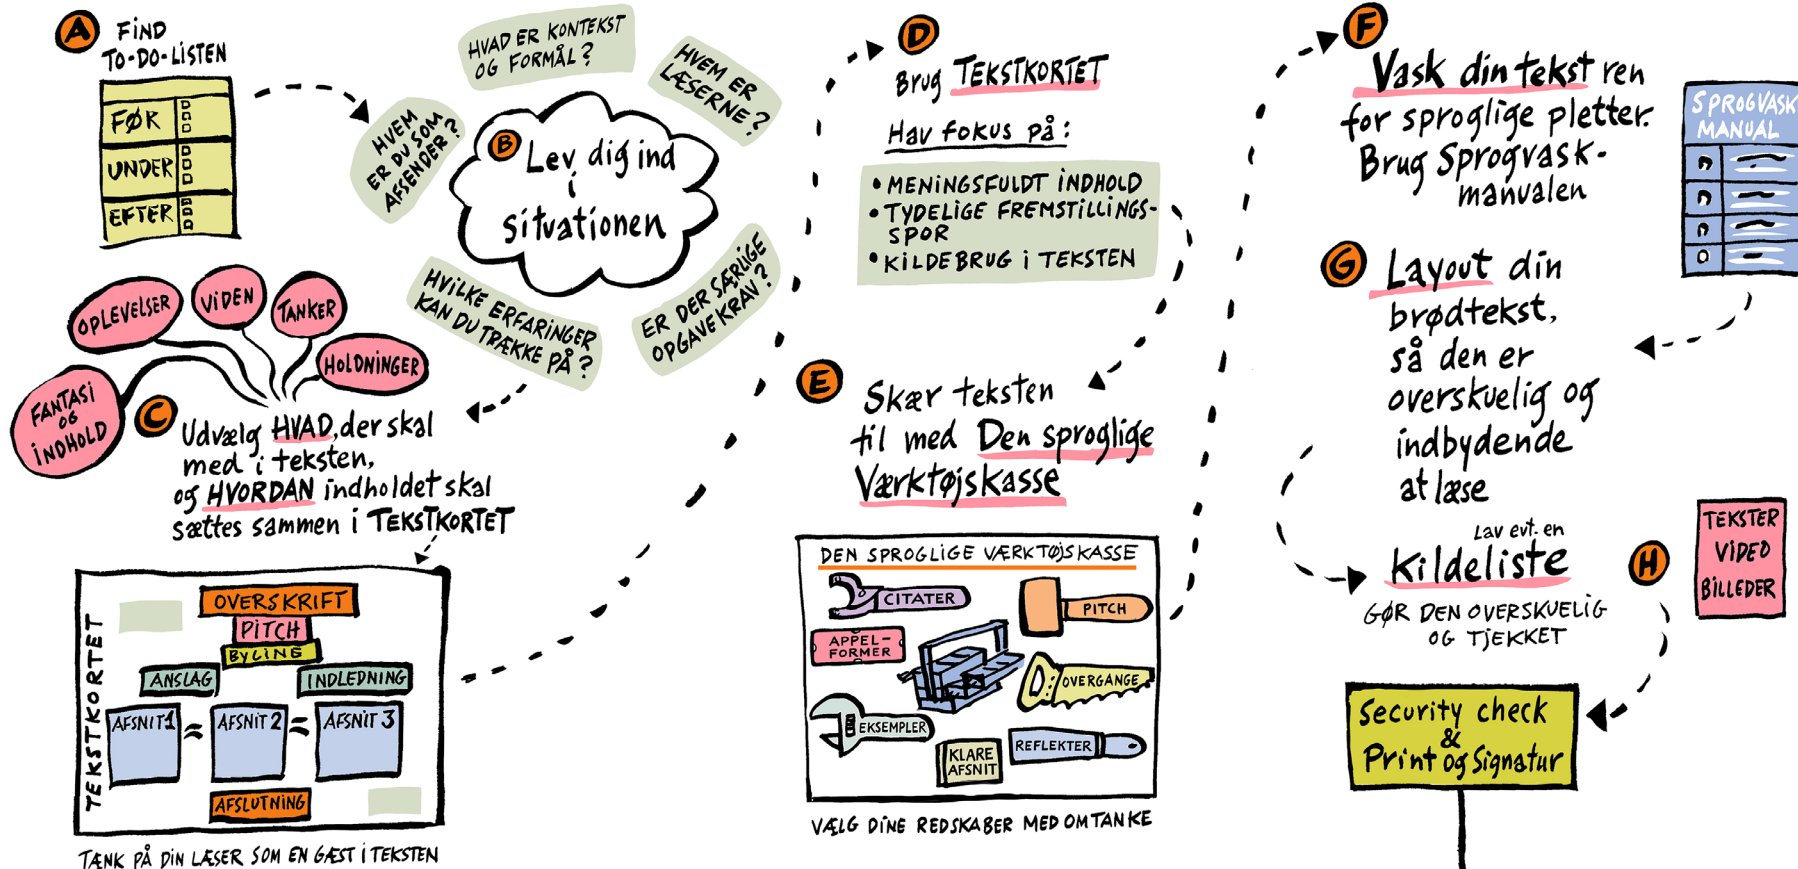 A
FIND
TO-DO-LISTEN
FØR
UNDER
EFTER
HVAD ER KONTEKST
OG FORMÅL?
HVEM ER
LÆSERNE?
HVEM
ER DU SOM
AFSENDER?
B
Lev dig ind
i
situationen
HVILKE ERFARINGER
KAN DU TRÆKKE PÅ?
ER DER SÆRLIGE
OPGAVEKRAV?
OPLEVELSER
VIDEN
TANKER
HOLDNINGER
FANTASI
OG
INDHOLD
C
Udvælg HVAD, der skal
med i teksten,
og HVORDAN indholdet skal
sættes sammen i TEKSTKORTET
TEKSTKORTET
OVERSKRIFT
PITCH
BYLINE
ANSLAG
INDLEDNING
AFSNIT 1
AFSNIT 2
AFSNIT 3
AFSLUTNING
TÆNK PÅ DIN LÆSER SOM EN GÆST I TEKSTEN
D
Brug TEKSTKORTET
Hav fokus på:
• MENINGSFULDT INDHOLD
• TYDELIGE FREMSTILLINGS-
SPOR
• KILDEBRUG I TEKSTEN
E
Skær teksten
til med Den sproglige
Værktøjskasse
DEN SPROGLIGE VÆRKTØJSKASSE
CITATER
PITCH
APPEL-
FORMER
OVERGANGE
EKSEMPLER
KLARE
AFSNIT
REFLEKTER
VÆLG DINE REDSKABER MED OMTANKE
F
Vask din tekst ren
for sproglige pletter.
Brug Sprogvask-
manualen
SPROGVASK
MANUAL
G
Layout din
brødtekst,
så den er
overskuelig og
indbydende
at læse
Lav evt. en
Kildeliste
GØR DEN OVERSKUELIG
OG TJEKKET
H
TEKSTER
VIDEO
BILLEDER
Security check
&
Print og Signatur